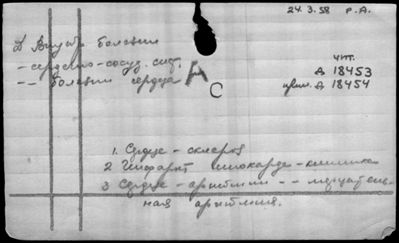 24.3.58 Р.А.
Д Внутр болезни
- сердечно-сосуд. сист.
-- болезни сердца
А
С
чит.
А 18453
А 18454
1. Сердце - склероз
2 Инфаркт миокарда - клиника
3 Сердце - аритмии -- мерцатель-
ная аритмия.